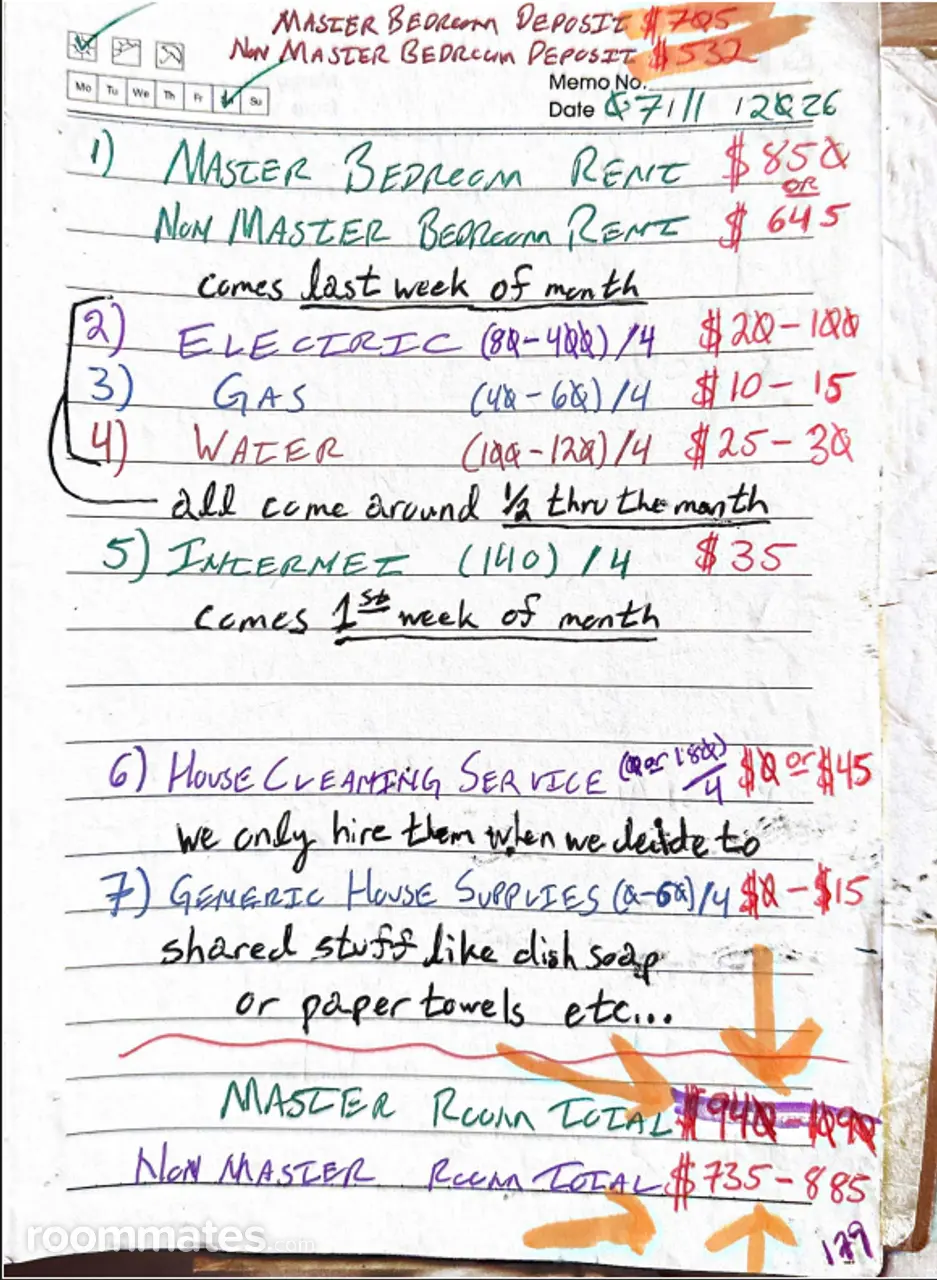 MASTER BEDROOM DEPOSIT $705
NON MASTER BEDROOM DEPOSIT $532
Mo Tu We Th Fr Su
Memo No.
Date 07/11/2026
1) MASTER BEDROOM RENT $850
OR
NON MASTER BEDROOM RENT $645
comes last week of month
2) ELECTRIC (80-400)/4 $20-100
3) GAS (40-60)/4 $10-15
4) WATER (100-120)/4 $25-30
all come around 1/2 thru the month
5) INTERNET (140)/4 $35
comes 1st week of month
6) HOUSE CLEANING SERVICE (0 or 180)/4 $0 or $45
we only hire them when we decide to
7) GENERIC HOUSE SUPPLIES (0-60)/4 $0-$15
shared stuff like dish soap
or paper towels etc...
MASTER ROOM TOTAL $940-1090
NON MASTER ROOM TOTAL $735-885
roommates.com
129